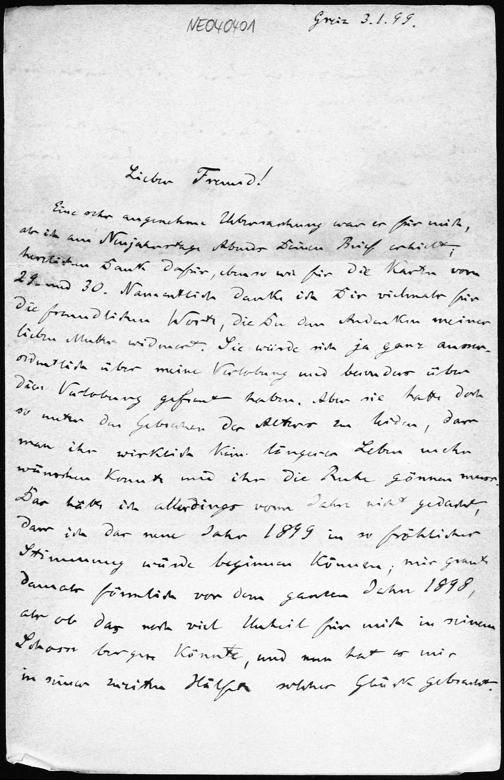 NE040401
Greiz 3.1.99.
Lieber Freund!
Eine sehr angenehme Ueberraschung war es für mich,
als ich am Neujahrstage Abends Deinen Brief erhielt;
herzlichen Dank dafür, ebenso wie für die Karten vom
29. und 30. Namentlich danke ich Dir vielmals für
die freundlichen Worte, die Du dem Andenken meiner
lieben Mutter widmest. Sie würde sich ja ganz ausser-
ordentlich über meine Verlobung und besonders über
diese Verlobung gefreut haben. Aber sie hatte doch
so unter den Gebrechen des Alters zu leiden, dass
man ihr wirklich kein längeres Leben mehr
wünschen konnte und ihr die Ruhe gönnen muss.
Das hätte ich allerdings vorm Jahr nicht gedacht,
dass ich das neue Jahr 1899 in so fröhlicher
Stimmung würde beginnen können; mir graute
damals förmlich vor dem ganzen Jahr 1898,
als ob das noch viel Unheil für mich in seinem
Schosse bergen könnte, und nun hat es mir
in seiner zweiten Hälfte solches Glück gebracht.